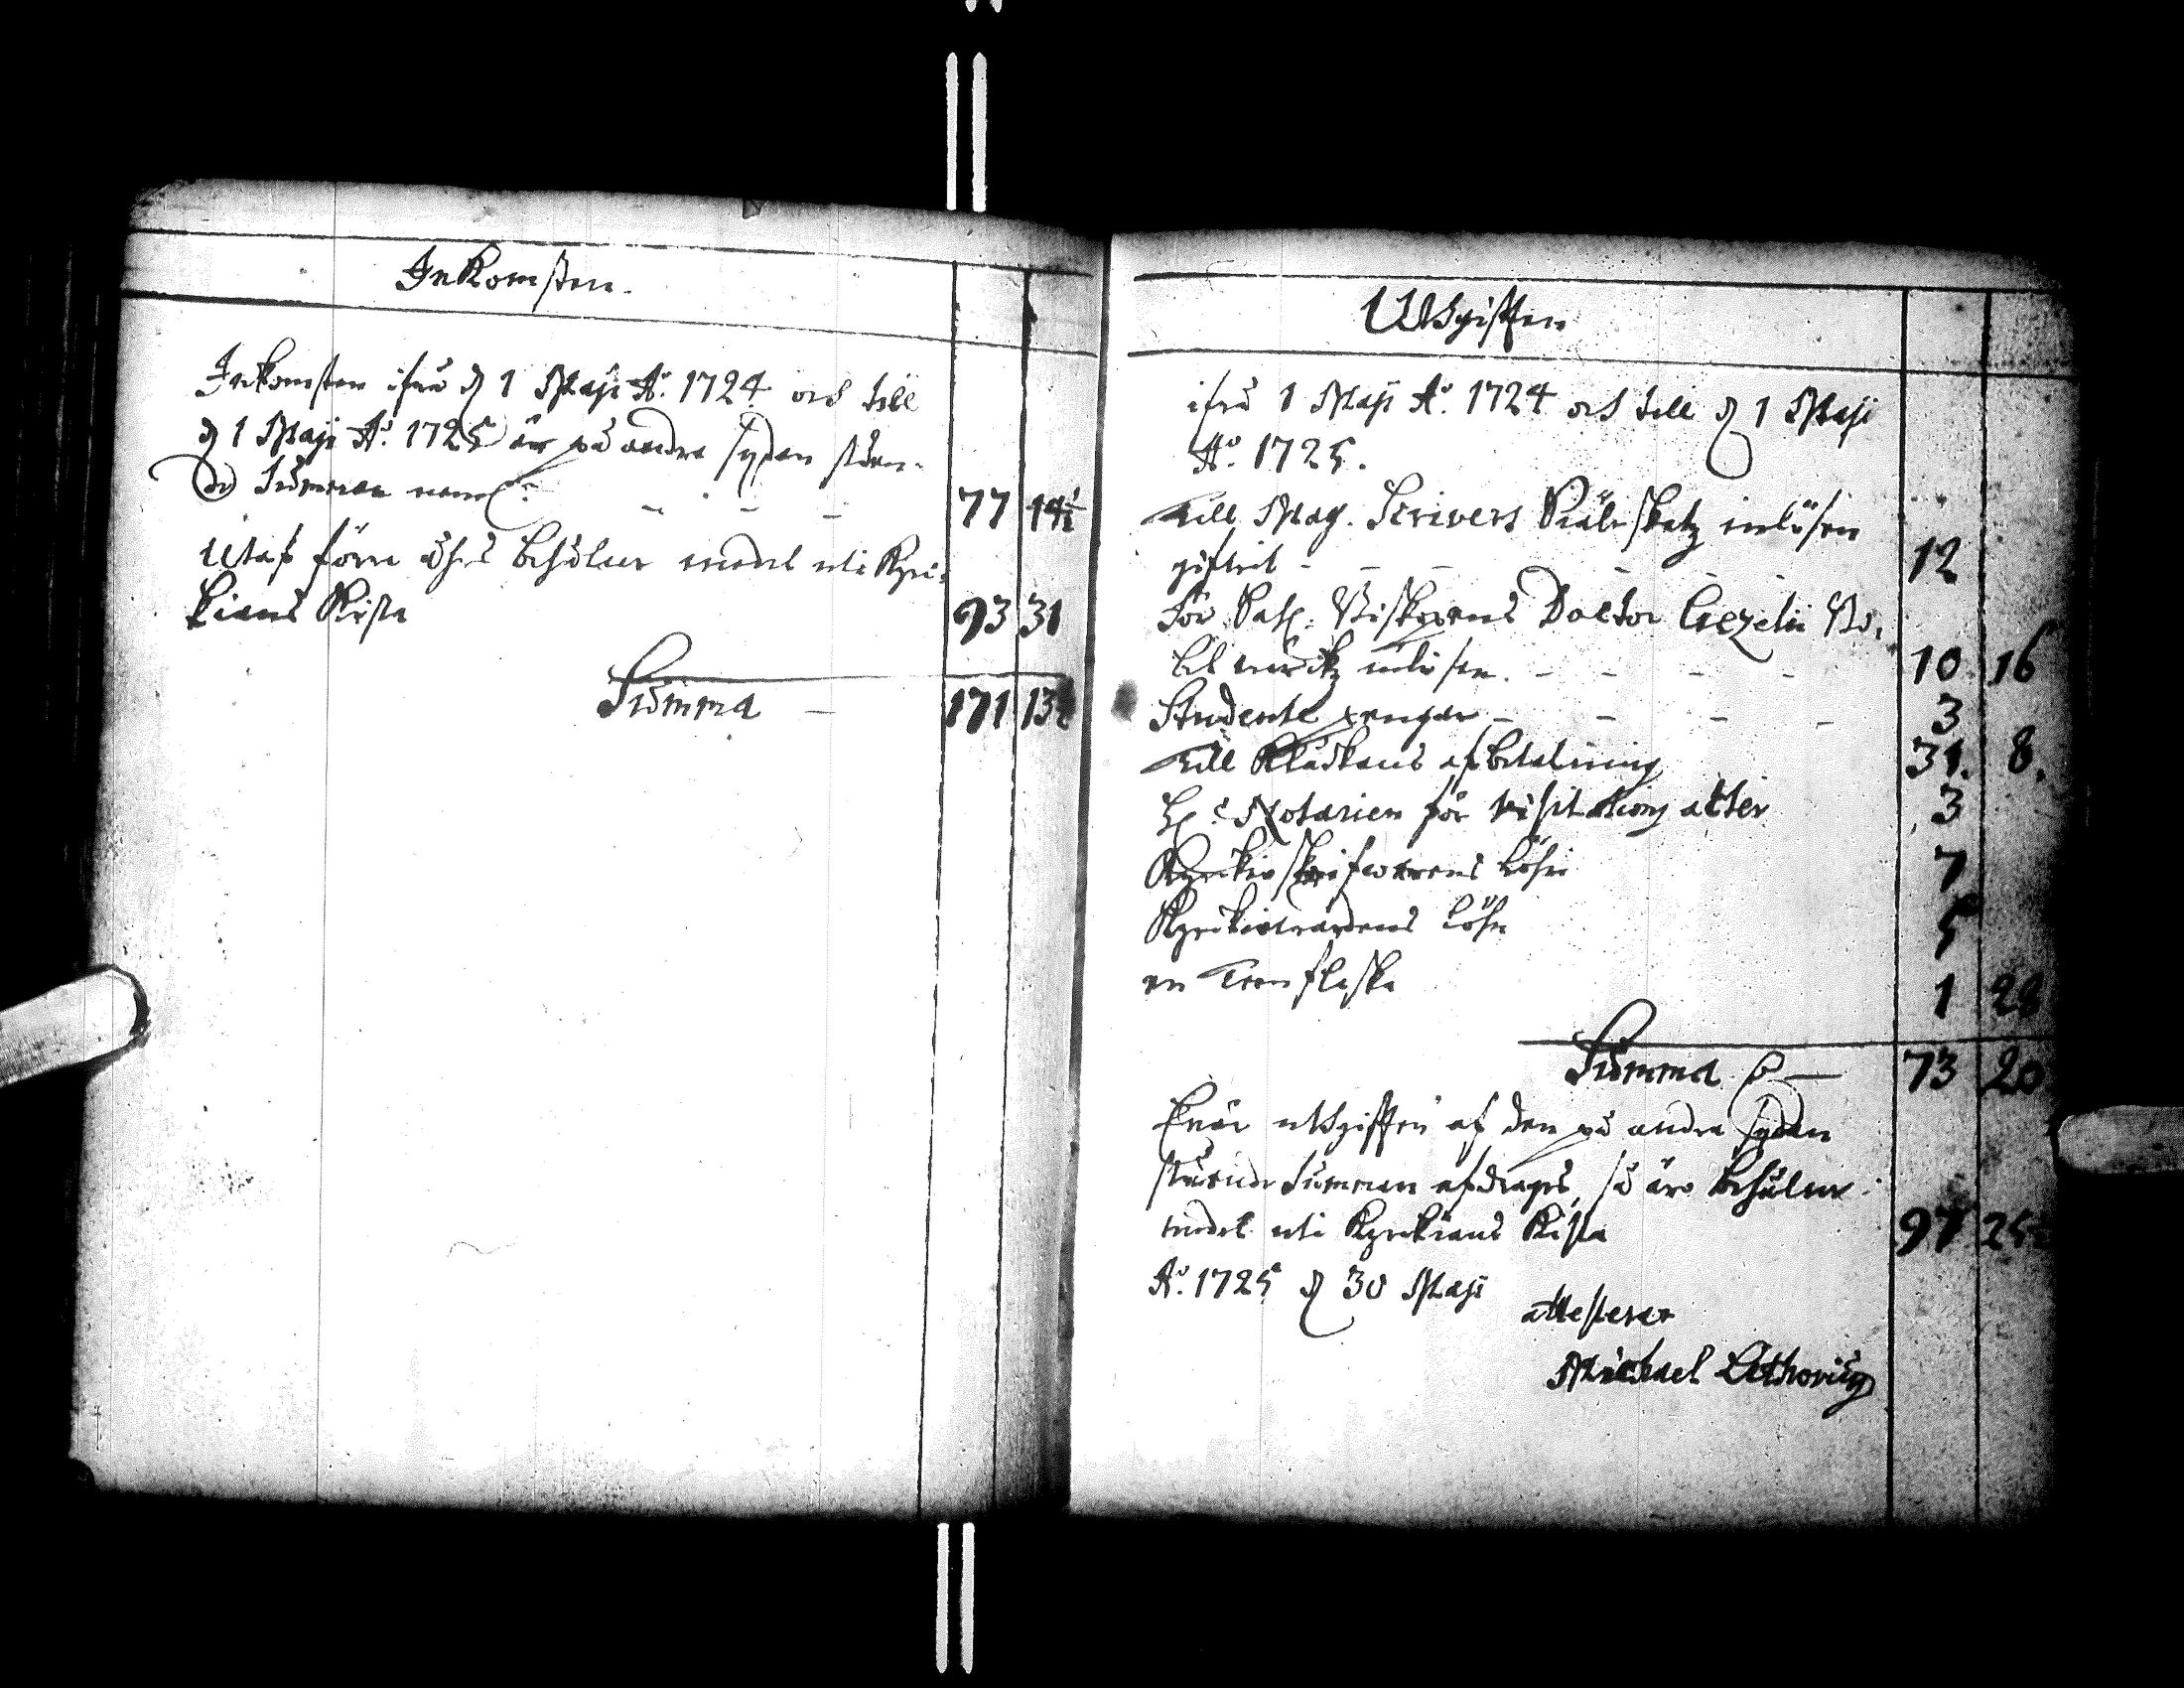 Inkomsten.
Inkomsten ifrå d 1 Maji Ao. 1724 och till
d 1 Maji Ao. 1725 är på andra sydan ståen-
de Summan neml: - - - 77 14½
Utaf förra åhrs behåln medel uti Kyri-
kians Kista 93 31
Summa - 171 13½
Uthgifften
ifrå 1 Maji Ao. 1724 och till d 1 Maji
Ao. 1725.
Till Mag. Scrivers Siäleskatz inlösen
gifvit - - - - - 12
för Sahl. Biskopens Doctor Gezelii Bi-
bel inlösen. - - - - 10 16
Studente pengar - - - - 3
Till Klåckans afbetalning 31. 8.
H: Notarien för visitations acter 3
Kyrkioskrifwarens löhn 7
Kyrkiowärdens löhn 5
en Tennflaska 1 28
Summa - 73 20
enär uthgifften af den på andra sydan
stående Summan afdrages, så äro behåln
medel uti Kyrkians Kista 97 25½
Ao. 1725 d 30 Maji
attesterar
Michael Lethovius